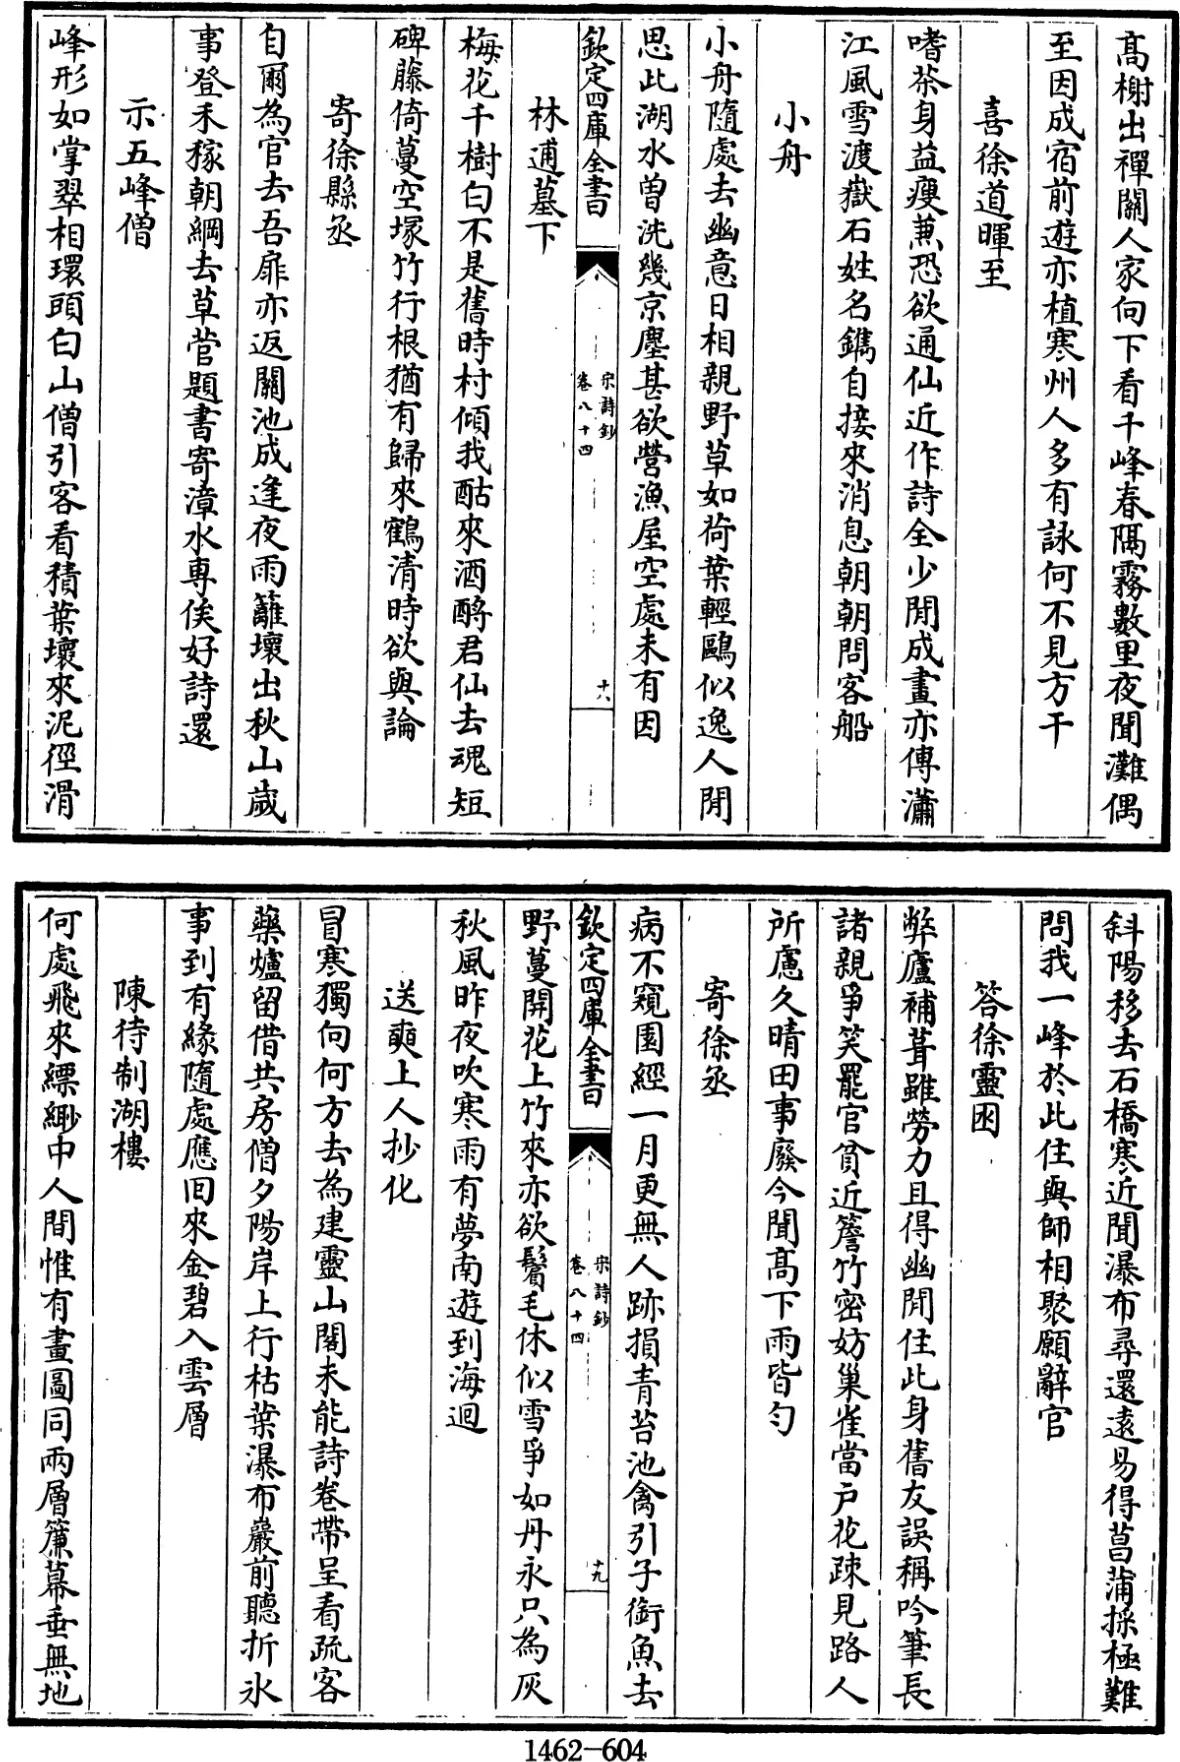 高榭出禪關人家向下看千峰春隔霧數里夜聞灘偶
至因成宿前遊亦植寒州人多有詠何不見方干
喜徐道暉至
嗜茶身益瘦兼恐欲通仙近作詩全少閒成畫亦傳瀟
江風雪渡嶽石姓名鐫自接來消息朝朝問客船
小舟
小舟隨處去幽意日相親野草如荷葉輕鷗似逸人閒
思此湖水曾洗幾京塵甚欲營漁屋空處未有因
欽定四庫全書
宋詩鈔
卷八十四
十八
林逋墓下
梅花千樹白不是舊時村傾我酤來酒酹君仙去魂短
碑藤倚蔓空塚竹行根猶有歸來鶴清時欲與論
寄徐縣丞
自爾為官去吾扉亦返關池成逢夜雨籬壞出秋山歲
事登禾稼朝綱去草菅題書寄漳水專俟好詩還
示五峰僧
峰形如掌翠相環頭白山僧引客看積葉壞來泥徑滑
斜陽移去石橋寒近聞瀑布尋還遠易得菖蒲採極難
問我一峰於此住與師相聚願辭官
答徐靈困
弊廬補葺雖勞力且得幽閒住此身舊友誤稱吟筆長
諸親爭笑罷官貧近簷竹密妨巢雀當戶花疎見路人
所慮久晴田事廢今聞高下雨皆勻
寄徐丞
病不窺園經一月更無人跡損青苔池禽引子銜魚去
欽定四庫全書
宋詩鈔
卷八十四
十九
野蔓開花上竹來亦欲鬢毛休似雪爭如丹永只為灰
秋風昨夜吹寒雨有夢南遊到海迴
送奭上人抄化
冒寒獨向何方去為建靈山閣未能詩卷帶呈看疏客
藥爐留借共房僧夕陽岸上行枯葉瀑布巖前聽折氷
事到有緣隨處應回來金碧入雲層
陳待制湖樓
何處飛來縹緲中人間惟有畫圖同兩層簾幕垂無地
1462-604